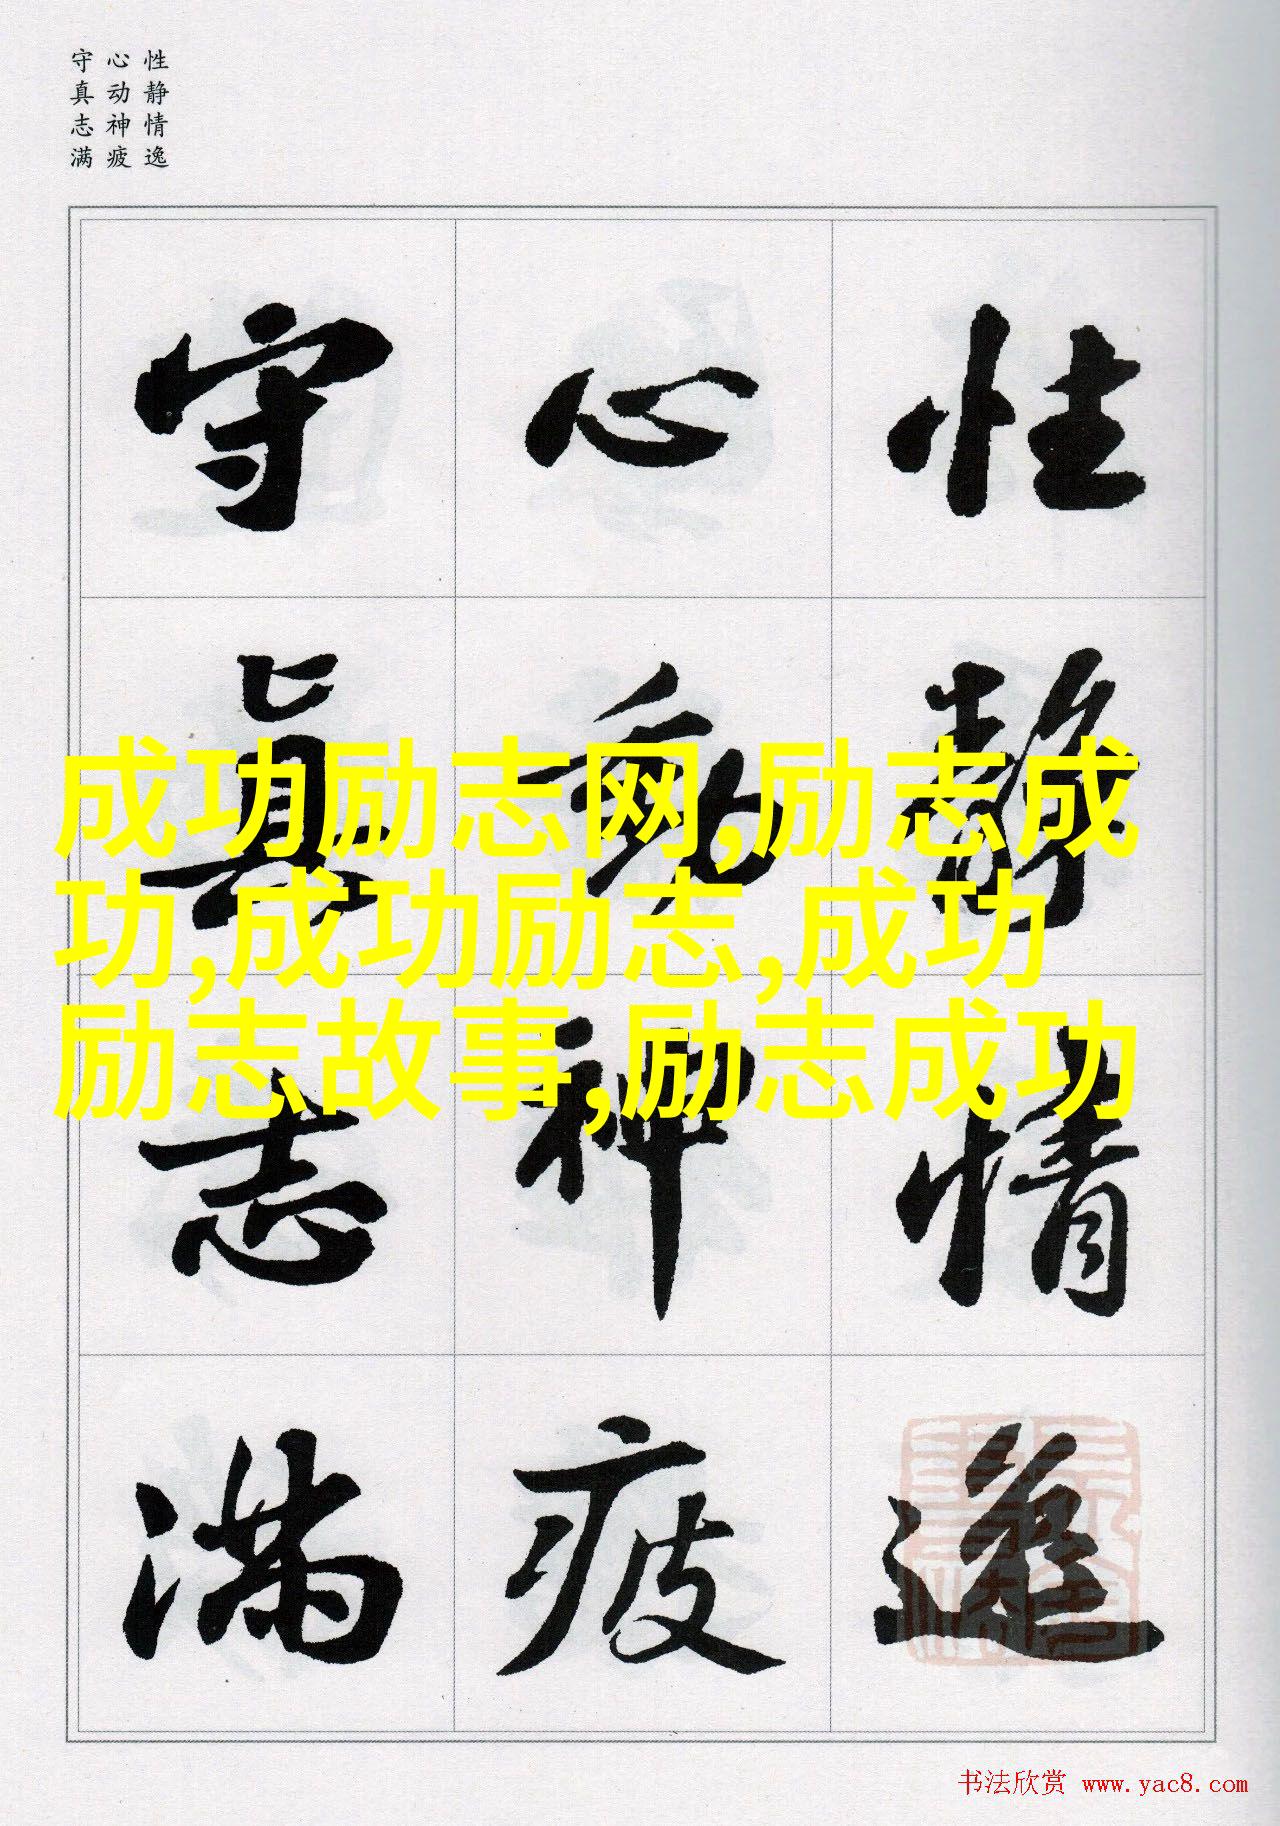 性静情逸
心动神疲
守真志满
性静情逸
心動神疲
守真志满
成功励志网,励志成
功,成功励志,成功
励志故事,励志成功
书法欣赏 www.yac8.com